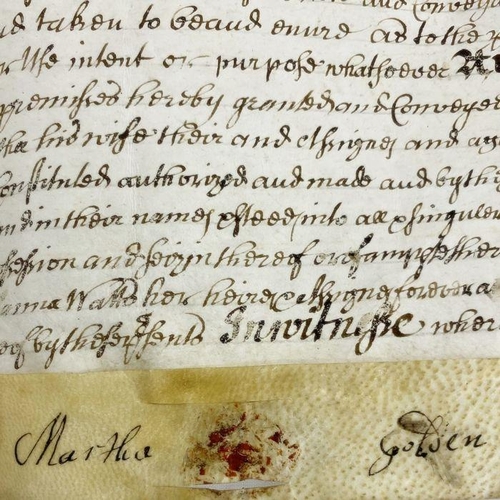 and Convey
nd taken to be and enure as to the
or Use intent or purpose whatsoever And
premisses hereby granted and Conveyed
tha his wife their and Assignes and ag
onstituted authorized and made and by the
and in their names & steed into all & singuler
ssession and seizin thereof or of any p
anna Watts her heires & Assignes forever a
eof by these presents In witnesse wher
Martha golden